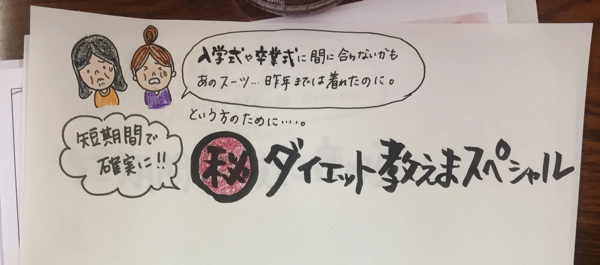 入学式や卒業式に間に合らないかも
あのスーツ…昨年までは着れたのに。
という方のために….。
短期間で
確実に!!
秘ダイエット教えまスペシャル